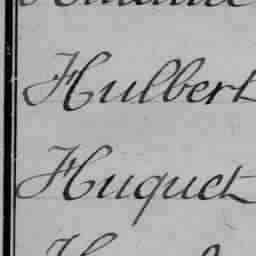 Hulbert
Huquet